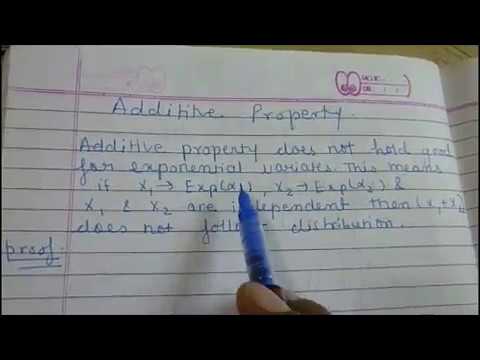 Additive Property.
Additive property does not hold good
for exponential variates. This means
if x₁ → Exp(α₁), x₂ → Exp(α₂) &
x₁ & x₂ are independent then (x₁+x₂
does not follow distribution.
proof: